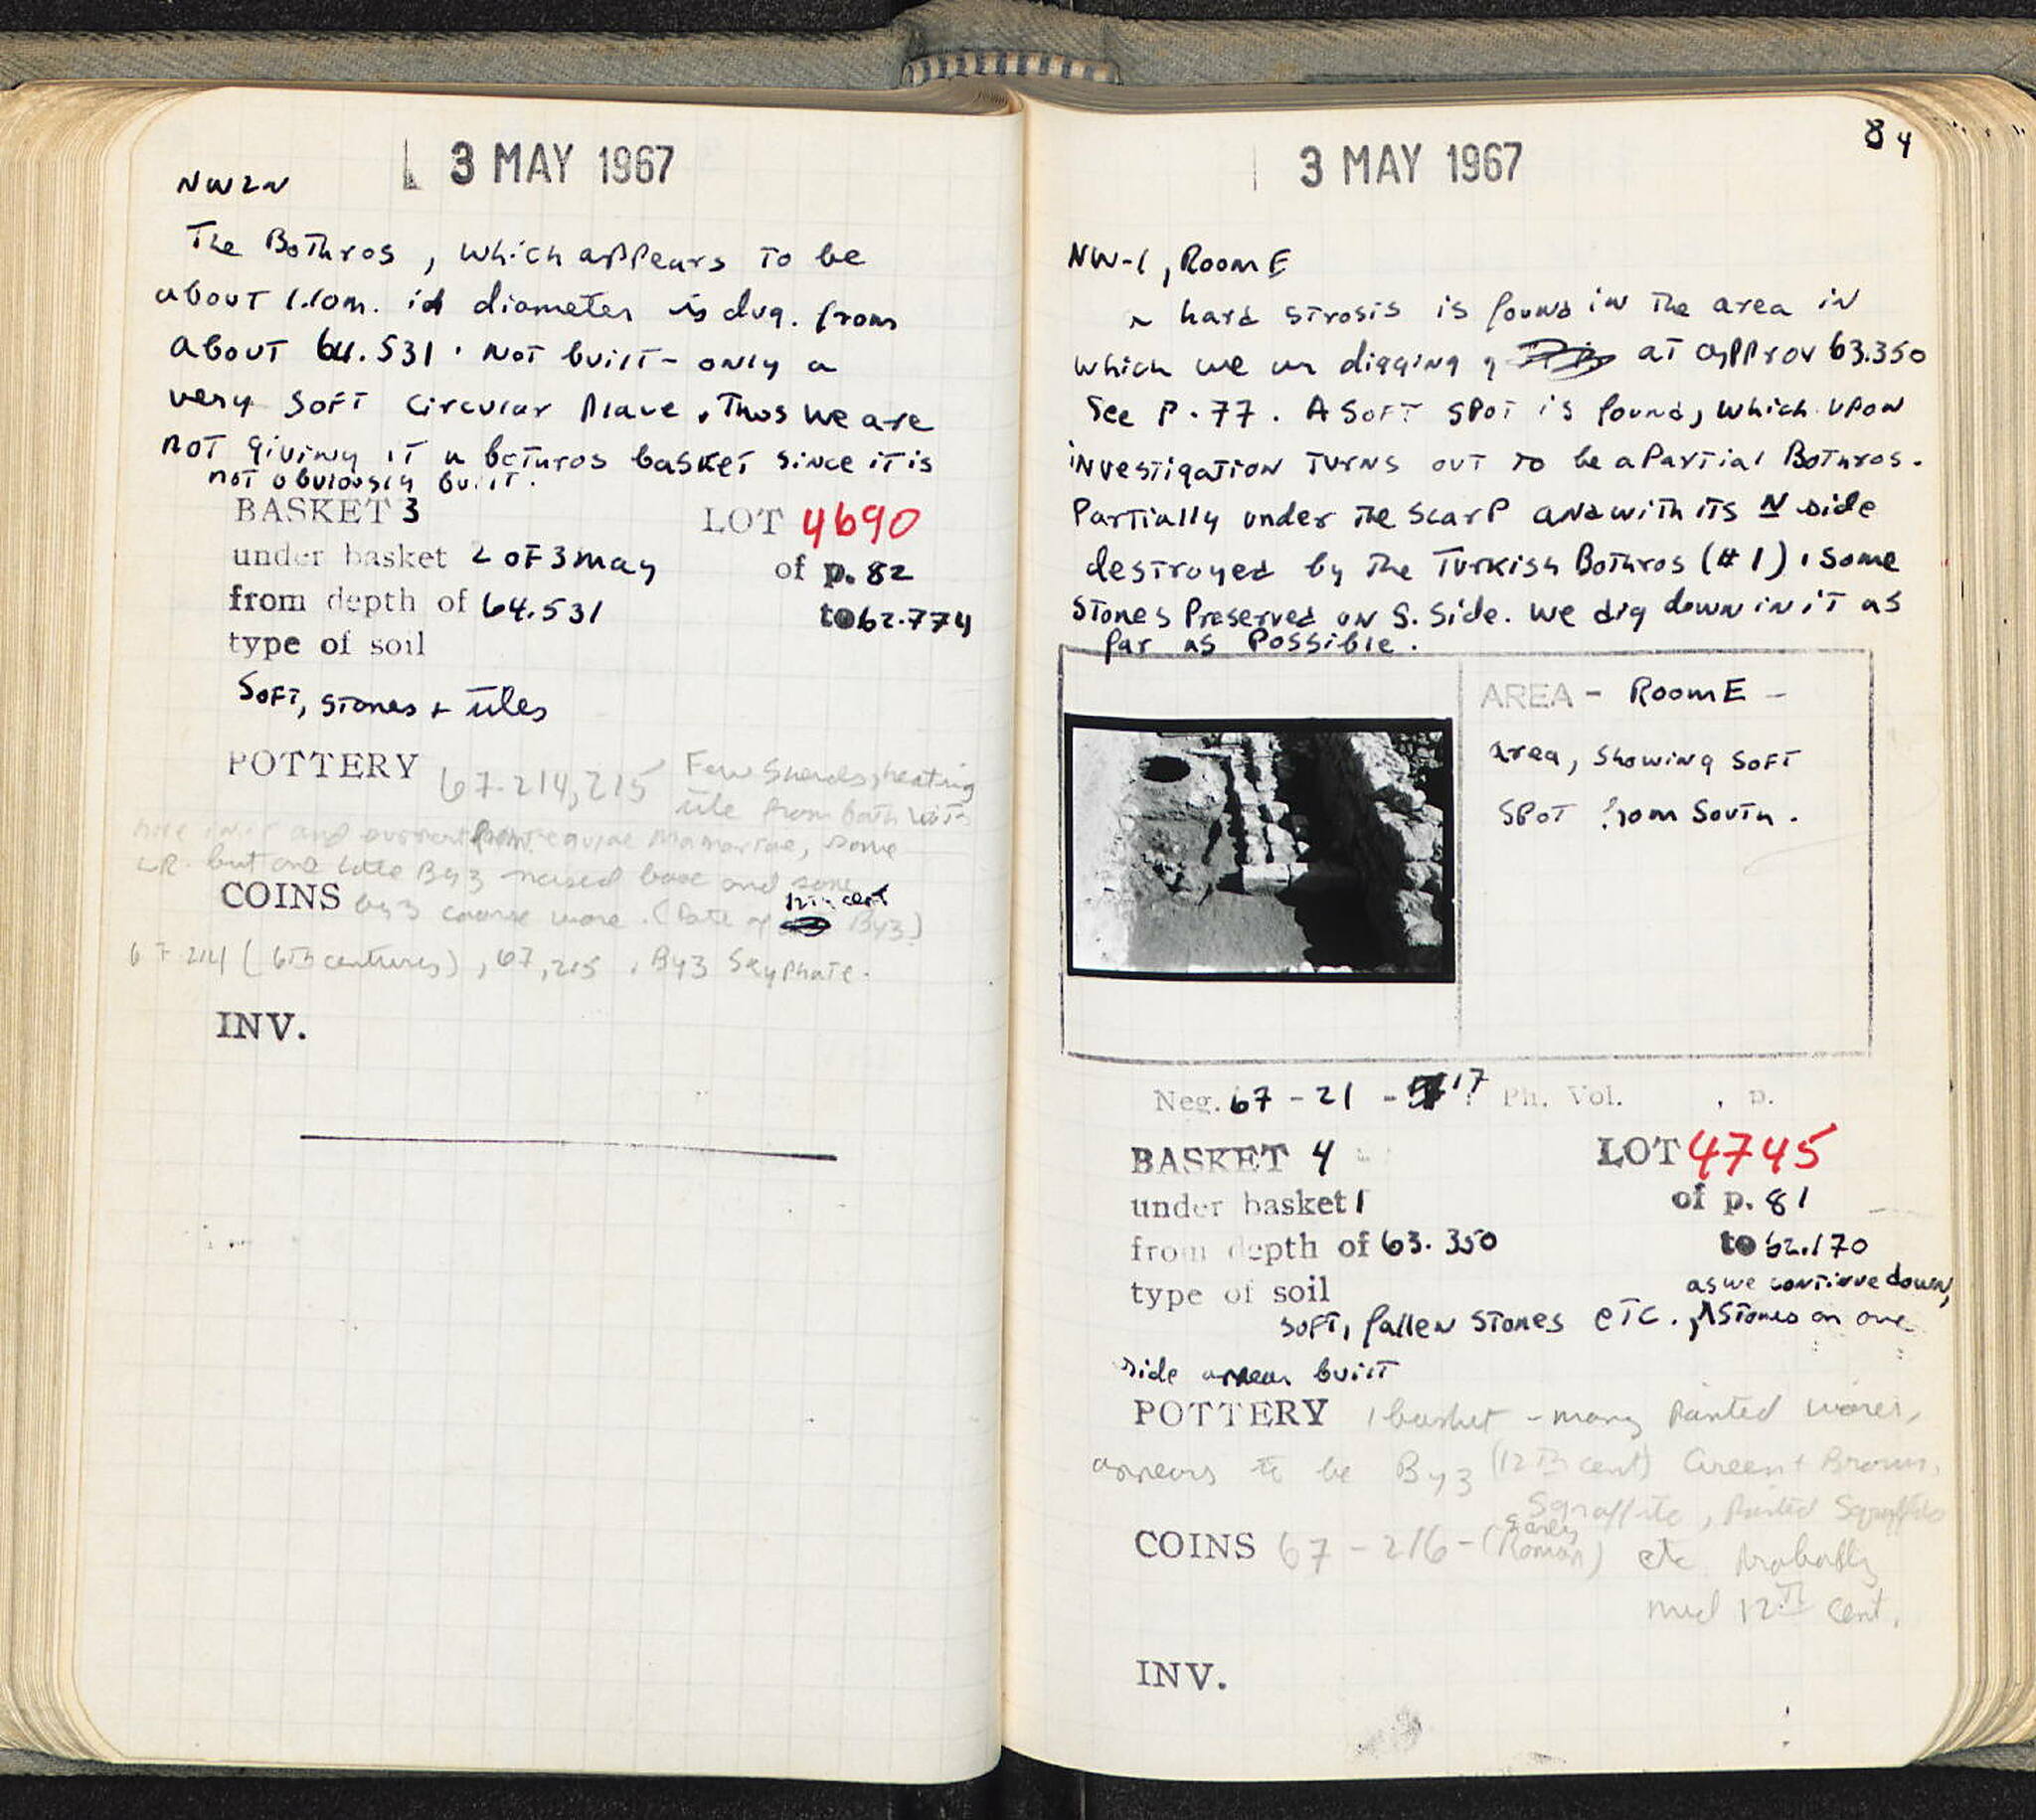 3 MAY 1967
NW2N
The Bothros, which appears to be
about 1.10m. in diameter is dug. from
about 64.531. Not built - only a
very soft circular place. Thus we are
not giving it a bothros basket since it is
not obviously built.
BASKET 3 LOT 4690
under basket 2 of 3 may of p. 82
from depth of 64.531 to 62.774
type of soil
Soft, stones + tiles
POTTERY 67-214, 215 Few sherds, heating
tile from both lots
and some
LR. but one late Byz raised base and some
COINS byz coarse ware. (Date of 12th cent Byz)
67-214 (6th centuries), 67,215, Byz Scyphate.
INV.
84
3 MAY 1967
NW-1, Room E
A hard strosis is found in the area in
which we are digging, at approx 63.350
See P. 77. A soft spot is found, which upon
investigation turns out to be a partial Bothros.
Partially under the scarp and with its N side
destroyed by the Turkish Bothros (#1), some
stones preserved on S. side. We dig down in it as
far as possible.
AREA - Room E -
area, showing soft
spot from South.
Neg. 67-21-17 Ph. Vol. , p.
BASKET 4 LOT 4745
under basket 1 of p. 81
from depth of 63.350 to 62.170
type of soil as we continue down,
soft, fallen stones etc., stones on one
side appear built
POTTERY 1 basket - many painted wares,
appears to be Byz (12th cent) Green + Brown,
Sgraffito, Painted Sgraffito
COINS 67-216-(Early Roman) etc. Probably
mid 12th cent.
INV.